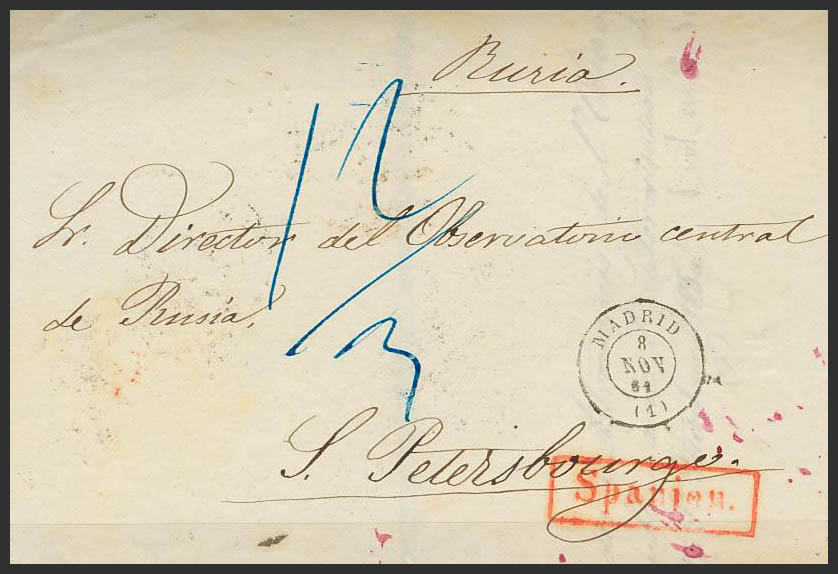 Rusia.
12/3
Sr. Director del Observatorio central
de Rusia.
MADRID
8
NOV
64
(1)
S. Petersbourge.
Spanien.